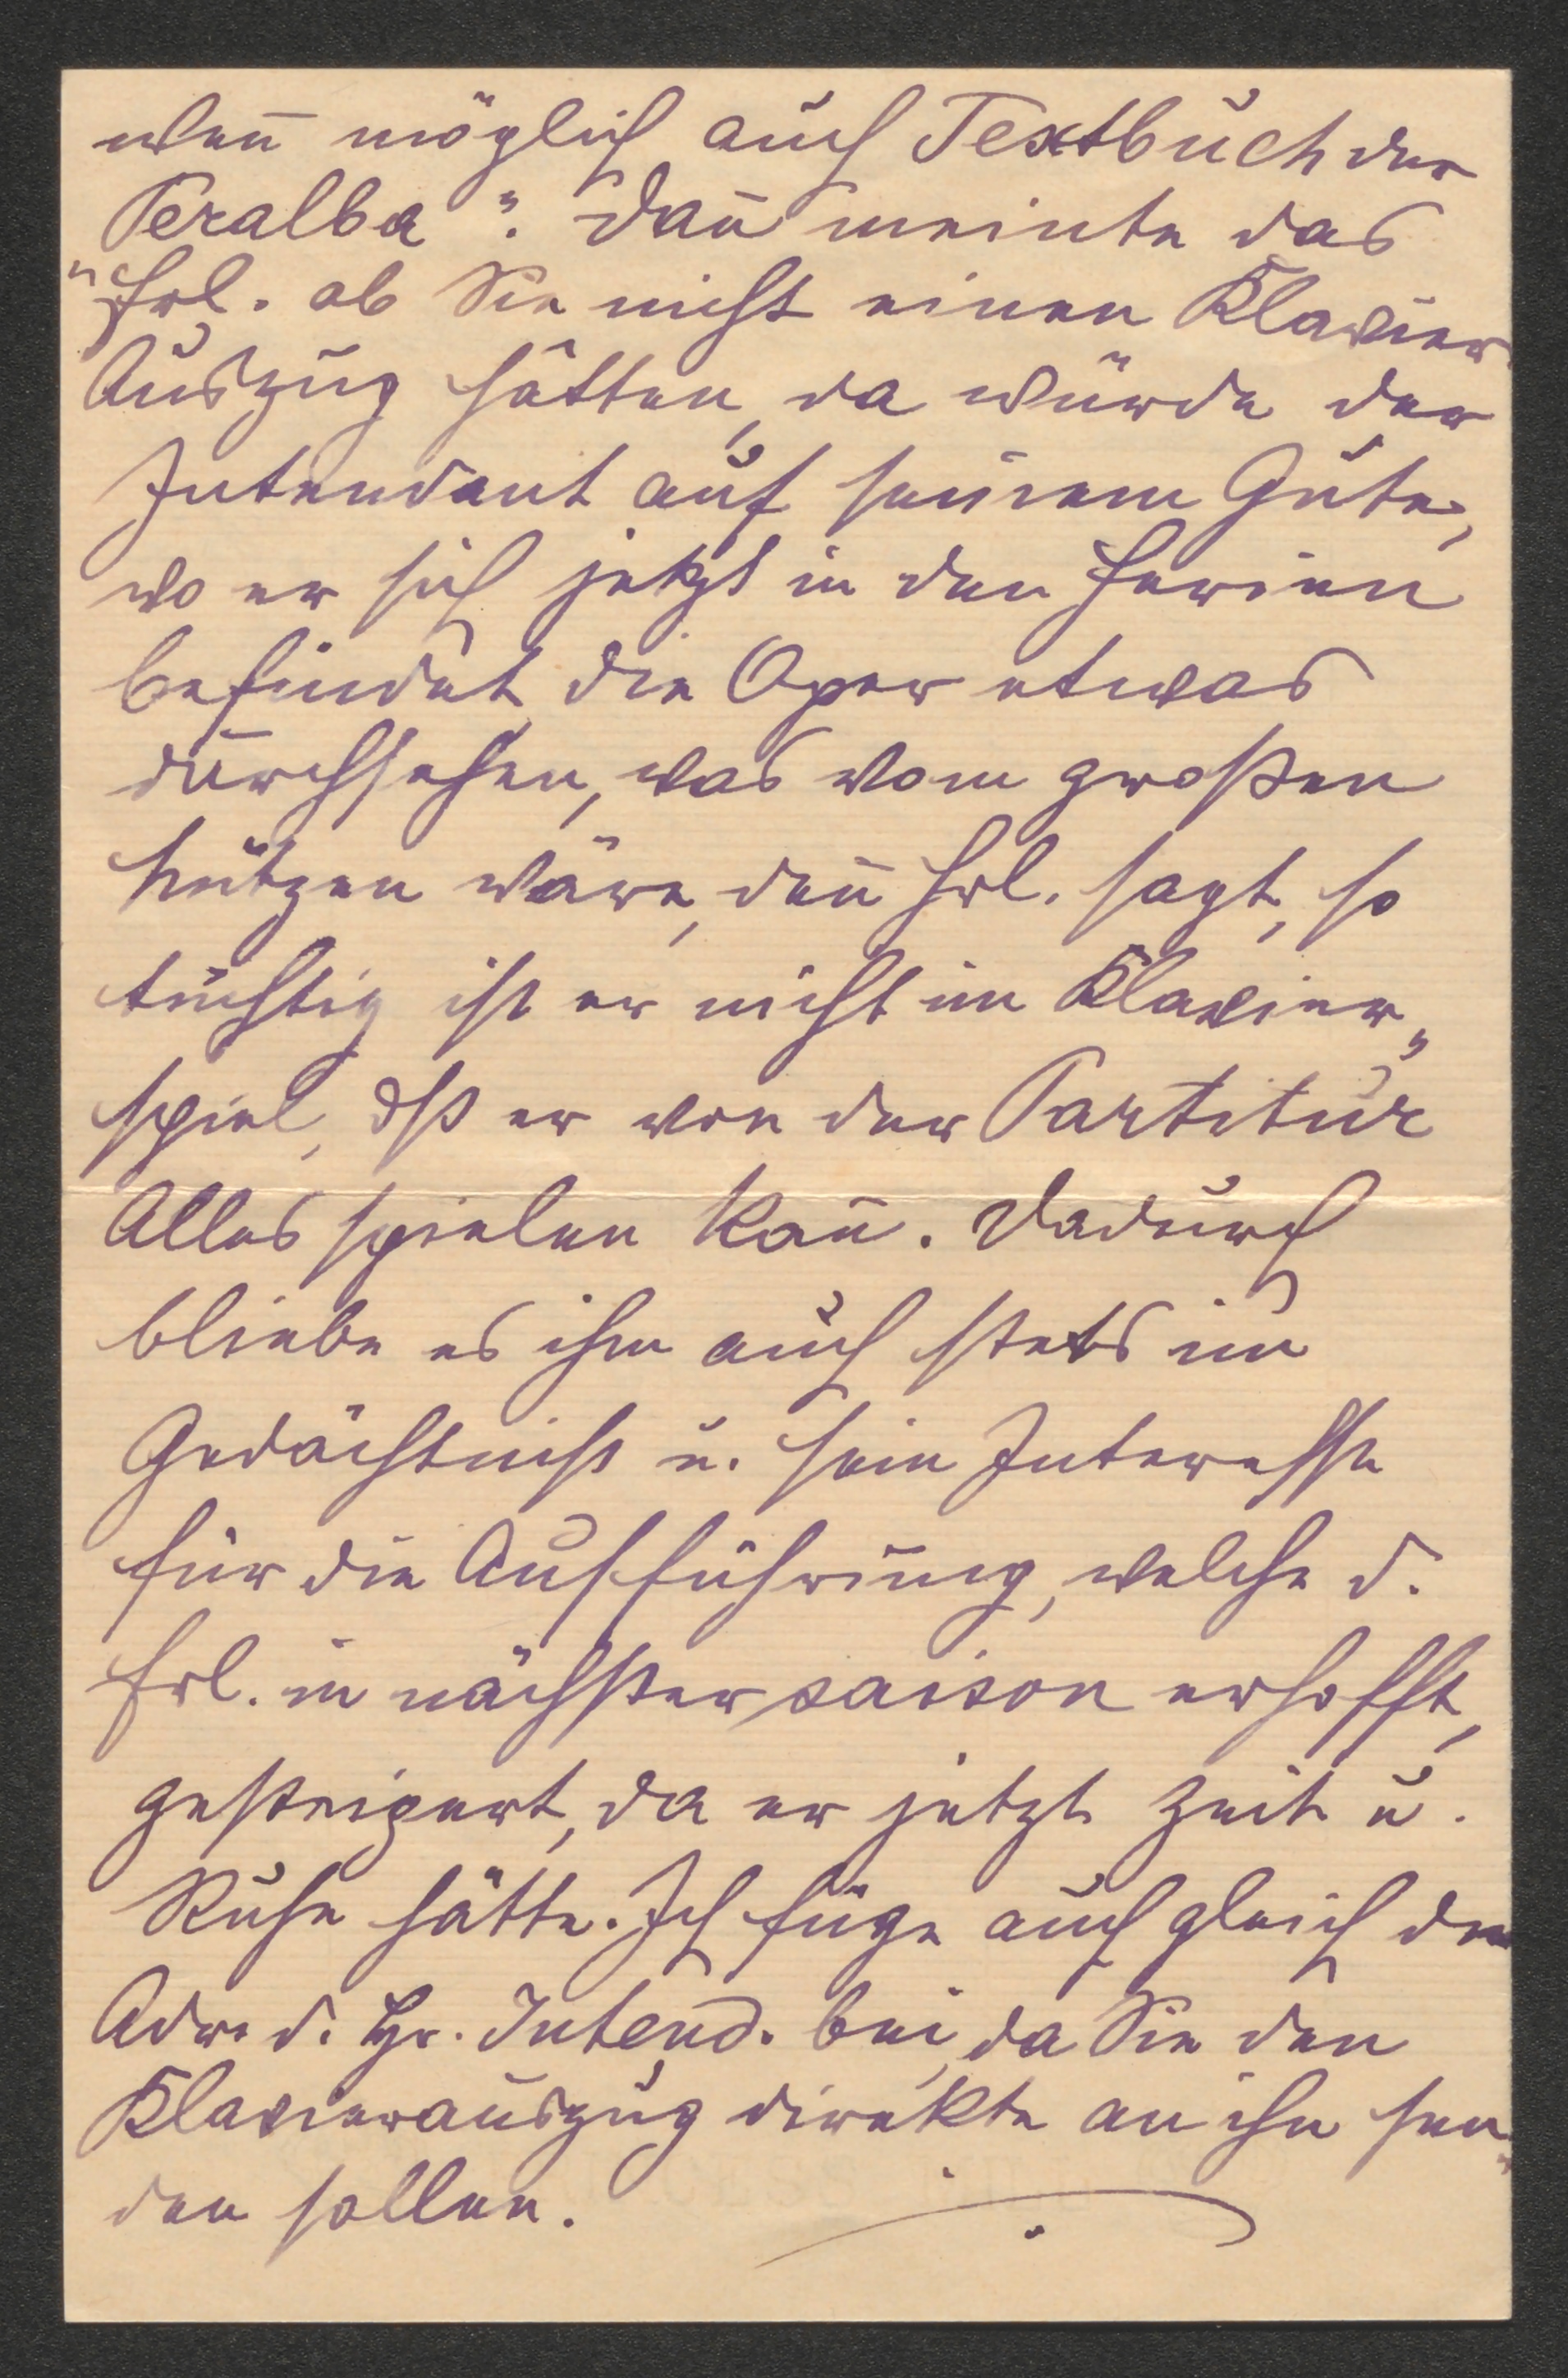 wen̄ möglich auch Textbuch der
„Peralba“. Dan̄ meinte das
Frl. ob Sie nicht einen Klavier
Auszug hätten, da würde der
Intendant auf seinem Gute,
wo er sich jetzt in den Ferien
befindet, die Oper etwas
durchsehen, was vom großen
Nutzen wäre, den̄ Frl. sagt, so
tüchtig ist er nicht im Klavier„
spiel, dß er von der Partitur
Alles spielen kan̄. Dadurch
bliebe es ihm auch stets im
Gedächtniß u. sein Interesse
für die Aufführung, welche d.
Frl. in nächster saison erhofft,
gesteigert, da er jetzt Zeit u.
Ruhe hätte. Ich füge auch gleich die
Adr. d. Hr. Intend. bei, da Sie den
Klavierauszug direkte an ihn sen„
den sollen.